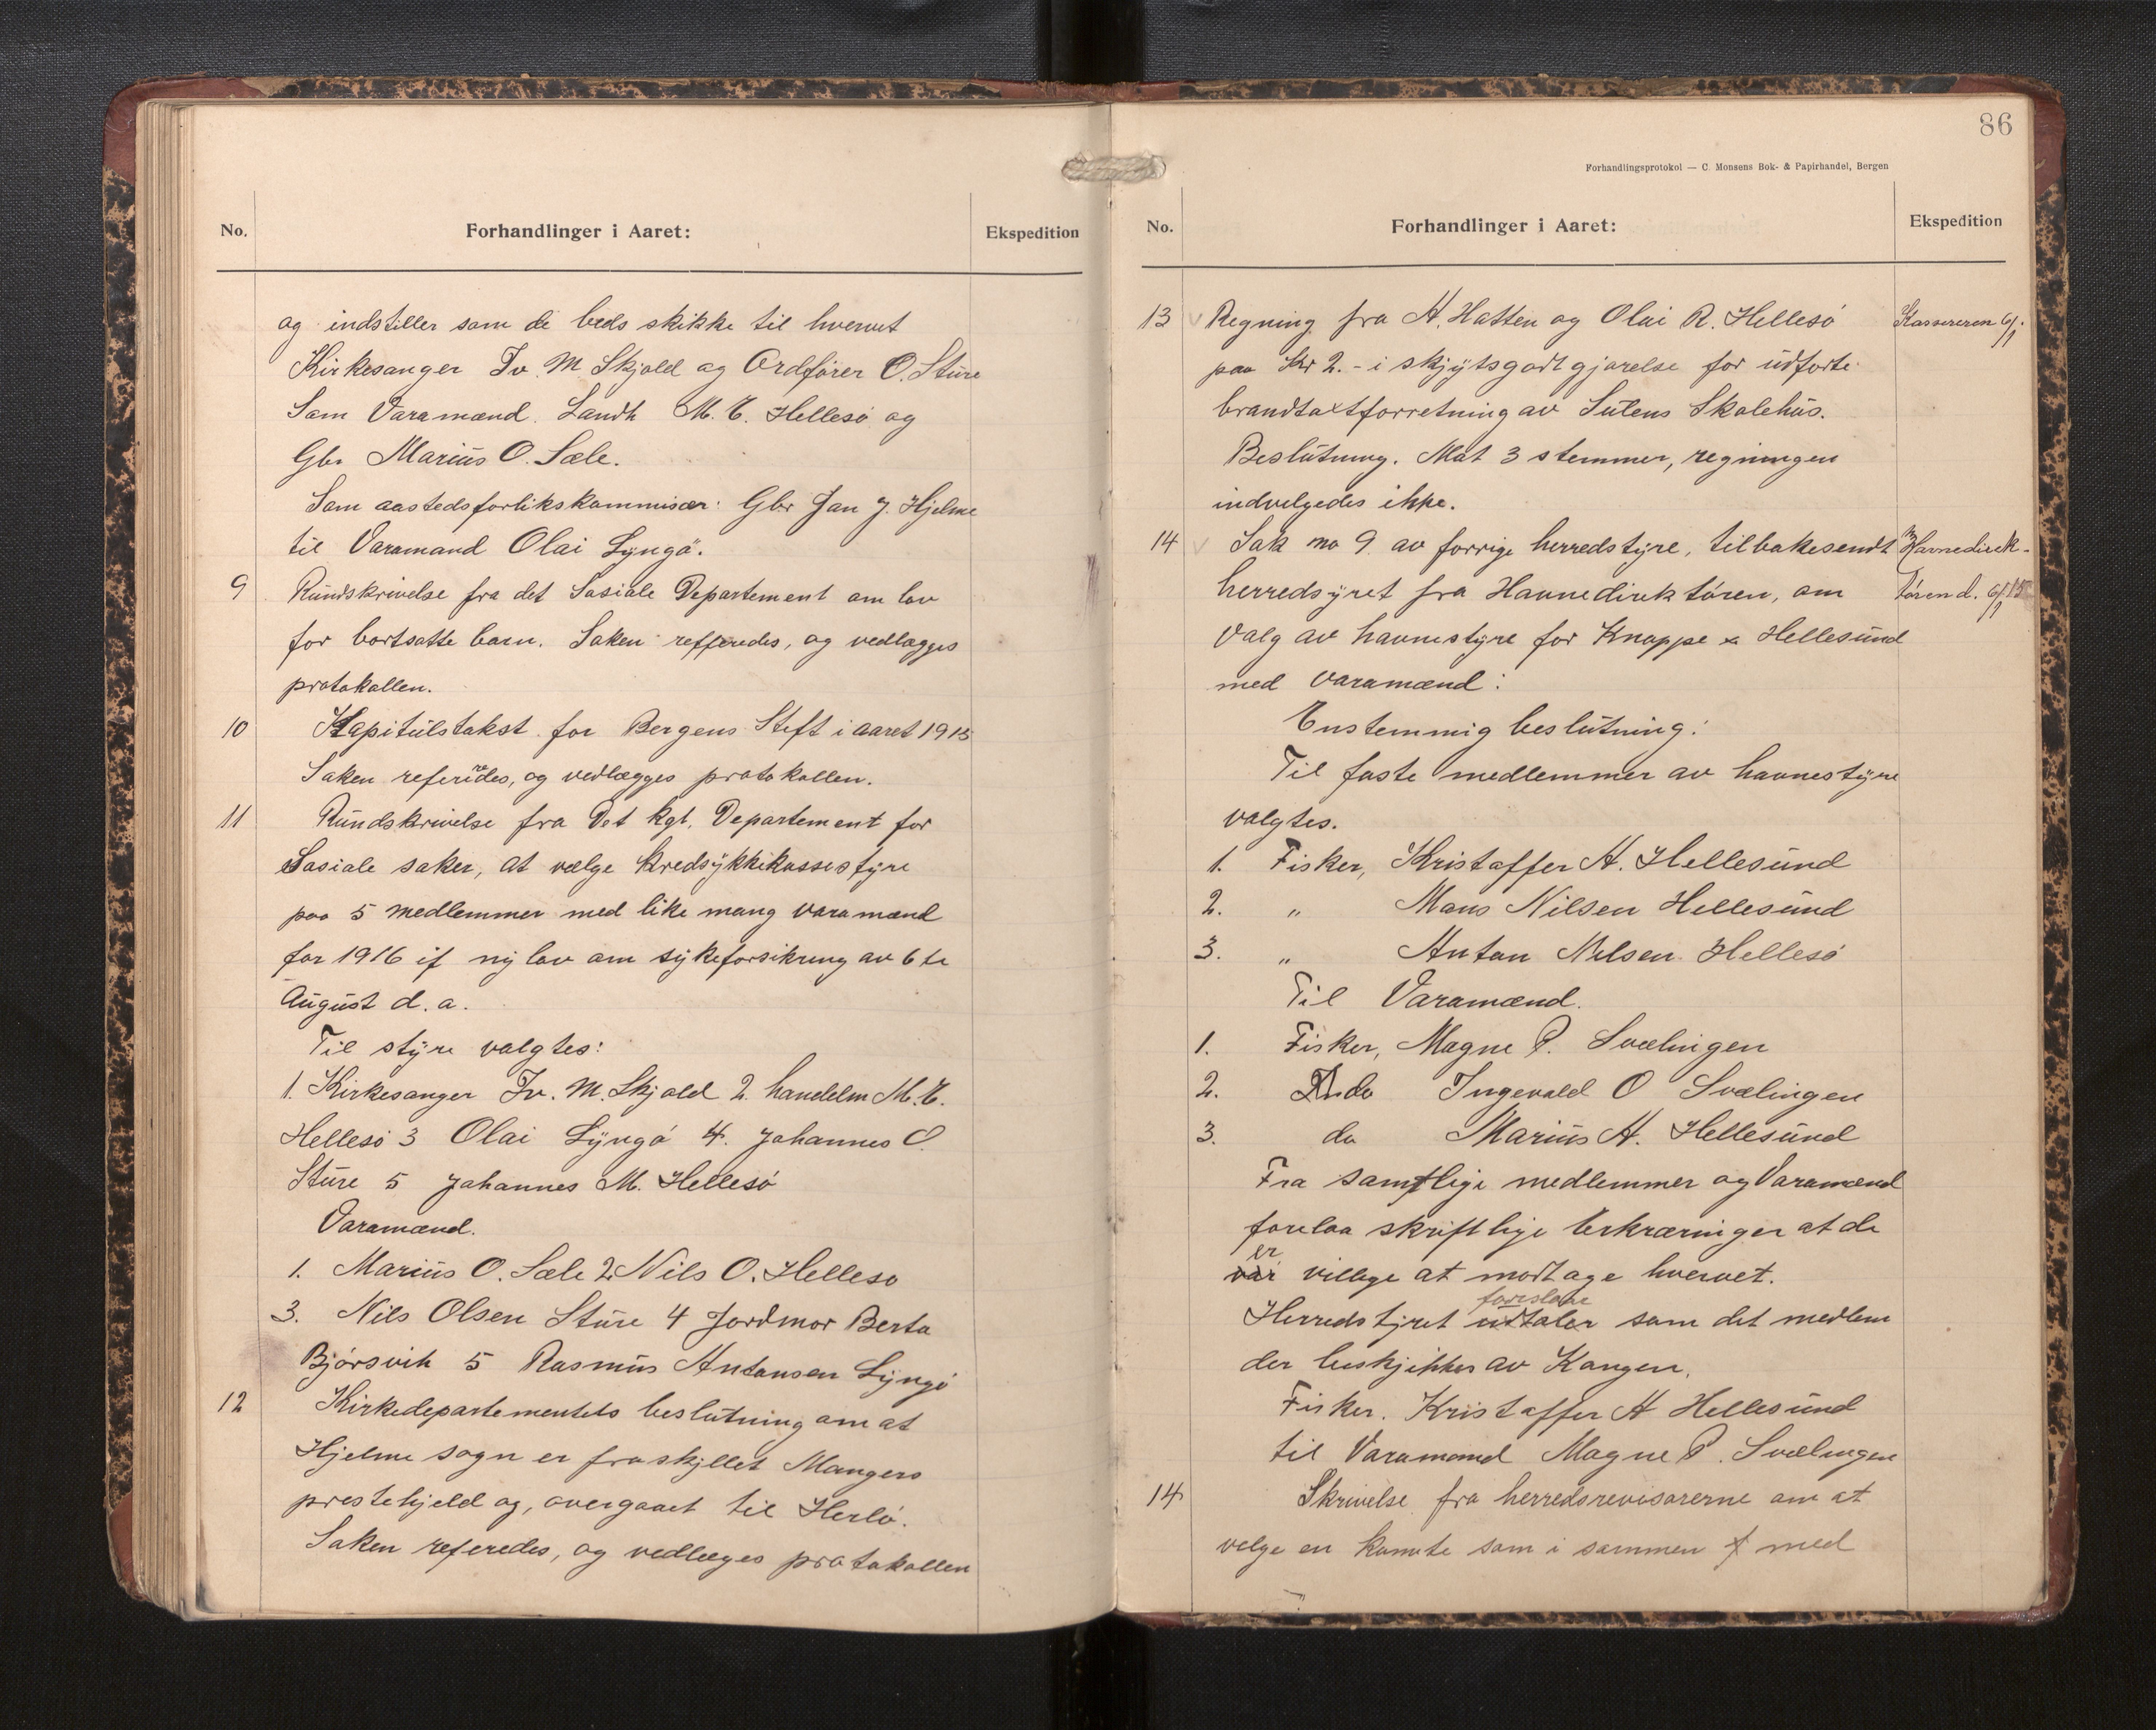 No.
Forhandlinger i Aaret:
Ekspedition
og indstiller som de beds skikke til hvervet
Kirkesanger Iv. M Skjold og Ordfører O. Sture
Som Varamænd. Landh M. E. Hellesø og
Gbr Marius O. Sæle.
Som aastedsforlikskommisær: Gbr Jan J. Hjelme
til Varamand Olai Lyngø.
9 Rundskrivelse fra det Sosiale Departement om lov
for bortsatte barn. Saken refferedes, og vedlægges
protokollen.
10 Kapitulstakst for Bergens Stift i aaret 1915
Saken refereredes, og vedlægges protokollen.
11 Rundskrivelse fra Det kgl. Departement for
Sosiale saker, at vælge kredsykkikassestyre
paa 5 medlemmer med like mang varamænd
for 1916 if ny lov om sykeforsikring av 6 te
August d. a.
Til styre valgtes:
1. Kirkesanger Iv. M. Skjold 2. handelm M. E.
Hellesø 3 Olai Lyngø 4. Johannes O.
Sture 5 Johannes M. Hellesø
Varamænd.
1. Marius O. Sæle 2. Nils O. Helleso
3. Nils Olsen Sture 4 Jordmor Berta
Bjørsvik 5 Rasmus Antonsen Lyngø
12 Kirkedepartementets beslutning om at
Hjelme sogn er fraskjillet Mangers
prestehjeld og, overgaaet til Herlø.
Saken referedes, og vedlæges protokollen
86
Forhandlingsprotokol — C. Monsens Bok- & Papirhandel, Bergen
No.
Forhandlinger i Aaret:
Ekspedition
13 Regning fra A. Hatten og Olai R. Hellesø
Kassereren 6/1.
paa Kr 2.- i skjytsgodtgjørelse for udførte
brandtaxtforretning av Sulens Skolehus.
Beslutning. Mot 3 stemmer, regningen
indvelgedes ikke.
14 Sak no 9 av forrige herredstyre, tilbakesendt
Havnedirek-
herredsyret fra Havnedirektøren, om
tøren d. 6/1 15
Valg av havnestyre for Knappe x Hellesund
med varamænd:
Enstemmig beslutning:
Til faste medlemmer av havnestyre
valgtes.
1. Fisker, Kristoffer A. Hellesund
2. " Mans Nilsen Hellesund
3. " Anton Nilsen Hellesø
Til Varamænd.
1. Fisker, Magne P. Svælingen
2. do Ingevald O Svælingen
3. do Marius A. Hellesund
Fra samtlige medlemmer og Varamænd
forelaa skriftlige Erkræringer at de
er
var villige at modtage hvervet.
foreslaae
Herredstyret udtaler som det medlem
der beskjikkes av Kongen.
Fisker. Kristoffer A Hellesund
til Varamand Magne P. Svælingen
14 Skrivelse fra herredsrevisorerne om at
velge en komite som i sammen med